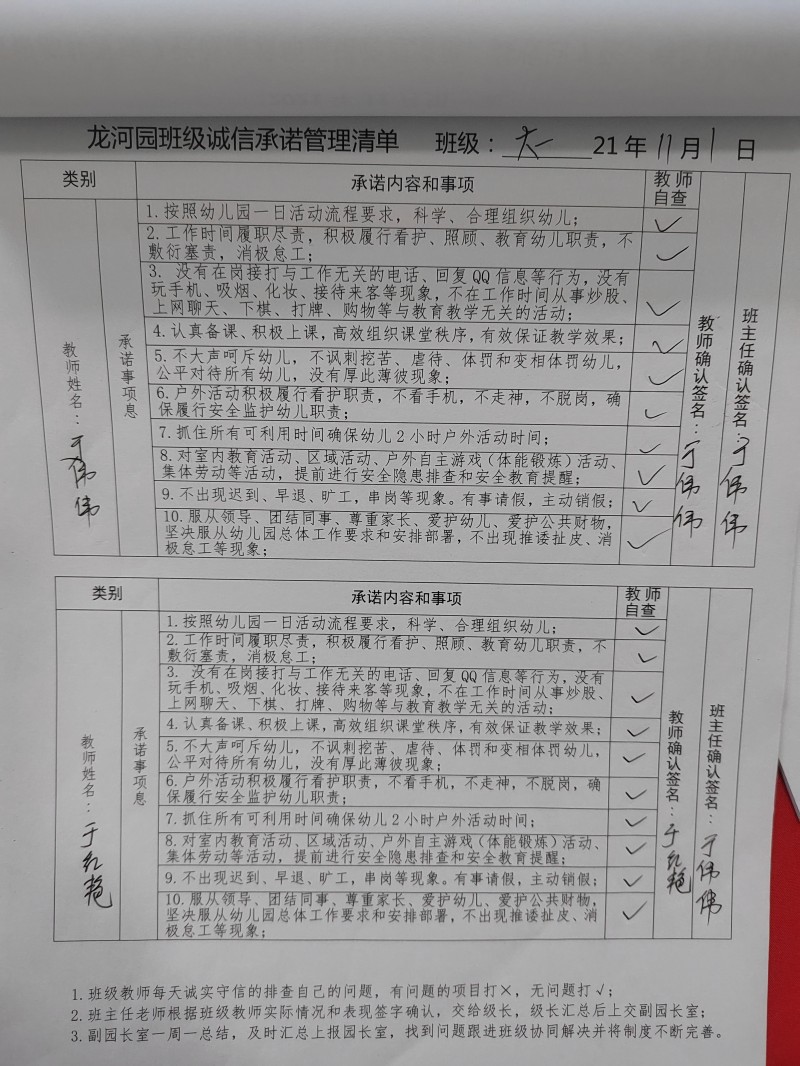 龙河园班级诚信承诺管理清单 班级：大一 21年11月1日
类别 承诺内容和事项 教师自查
教师姓名：于伟伟
承诺事项息
1.按照幼儿园一日活动流程要求，科学、合理组织幼儿； ✓
2.工作时间履职尽责，积极履行看护、照顾、教育幼儿职责，不
敷衍塞责，消极怠工； ✓
3. 没有在岗接打与工作无关的电话、回复QQ信息等行为，没有
玩手机、吸烟、化妆、接待来客等现象，不在工作时间从事炒股、
上网聊天、下棋、打牌、购物等与教育教学无关的活动； ✓
4.认真备课、积极上课，高效组织课堂秩序，有效保证教学效果； ✓
5.不大声呵斥幼儿，不讽刺挖苦、虐待、体罚和变相体罚幼儿，
公平对待所有幼儿，没有厚此薄彼现象； ✓
6.户外活动积极履行看护职责，不看手机，不走神，不脱岗，确
保履行安全监护幼儿职责； ✓
7.抓住所有可利用时间确保幼儿2小时户外活动时间； ✓
8.对室内教育活动、区域活动、户外自主游戏（体能锻炼）活动、
集体劳动等活动，提前进行安全隐患排查和安全教育提醒； ✓
9.不出现迟到、早退、旷工，串岗等现象。有事请假，主动销假； ✓
10.服从领导、团结同事、尊重家长、爱护幼儿、爱护公共财物，
坚决服从幼儿园总体工作要求和安排部署，不出现推诿扯皮、消
极怠工等现象； ✓
教师确认签名：于伟伟
班主任确认签名：于伟伟
类别 承诺内容和事项 教师自查
教师姓名：于红艳
承诺事项息
1.按照幼儿园一日活动流程要求，科学、合理组织幼儿； ✓
2.工作时间履职尽责，积极履行看护、照顾、教育幼儿职责，不
敷衍塞责，消极怠工； ✓
3. 没有在岗接打与工作无关的电话、回复QQ信息等行为，没有
玩手机、吸烟、化妆、接待来客等现象，不在工作时间从事炒股、
上网聊天、下棋、打牌、购物等与教育教学无关的活动； ✓
4.认真备课、积极上课，高效组织课堂秩序，有效保证教学效果； ✓
5.不大声呵斥幼儿，不讽刺挖苦、虐待、体罚和变相体罚幼儿，
公平对待所有幼儿，没有厚此薄彼现象； ✓
6.户外活动积极履行看护职责，不看手机，不走神，不脱岗，确
保履行安全监护幼儿职责； ✓
7.抓住所有可利用时间确保幼儿2小时户外活动时间； ✓
8.对室内教育活动、区域活动、户外自主游戏（体能锻炼）活动、
集体劳动等活动，提前进行安全隐患排查和安全教育提醒； ✓
9.不出现迟到、早退、旷工，串岗等现象。有事请假，主动销假； ✓
10.服从领导、团结同事、尊重家长、爱护幼儿、爱护公共财物，
坚决服从幼儿园总体工作要求和安排部署，不出现推诿扯皮、消
极怠工等现象； ✓
教师确认签名：于红艳
班主任确认签名：于伟伟
1.班级教师每天诚实守信的排查自己的问题，有问题的项目打×，无问题打√；
2.班主任老师根据班级教师实际情况和表现签字确认，交给级长，级长汇总后上交副园长室；
3.副园长室一周一总结，及时汇总上报园长室，找到问题跟进班级协同解决并将制度不断完善。